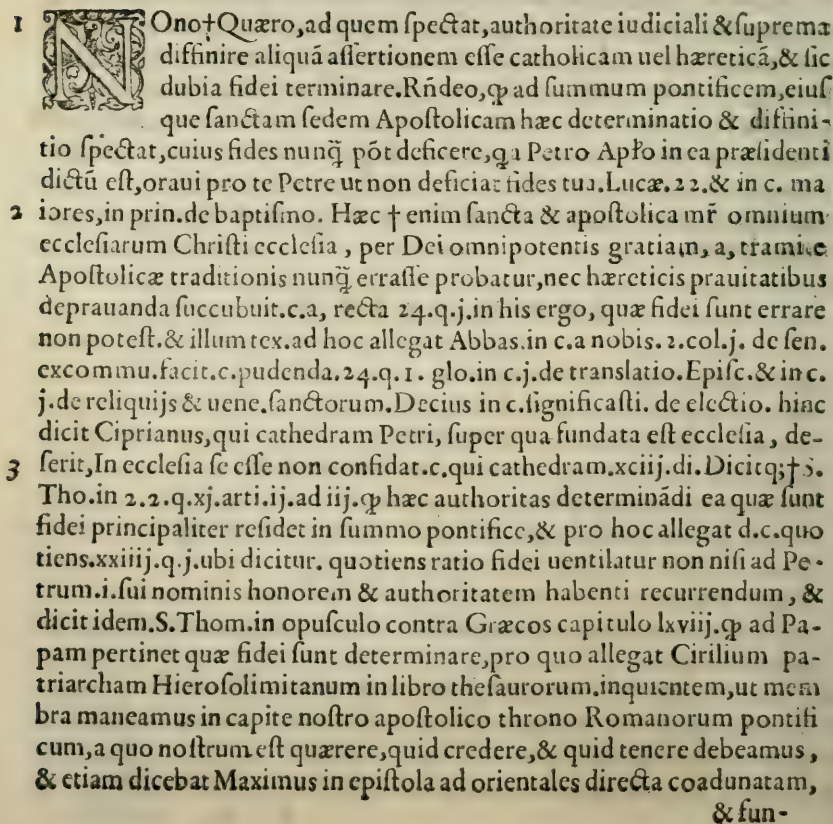 1 NOno†Quæro,ad quem ſpectat,authoritate iudiciali & ſuprema
diffinire aliquā aſſertionem eſſe catholicam uel hæreticā,& ſic
dubia fidei terminare.Rñdeo,ꝙ ad ſummum pontificem,eiuſ
que ſanctam ſedem Apoſtolicam hæc determinatio & diffini-
tio ſpectat,cuius fides nunq̄ pōt deficere,q̄a Petro Apło in ea præſidenti
dictū eſt,oraui pro te Petre ut non deficiat fides tua.Lucæ.22.& in c. ma
2 iores,in prin.de baptiſmo. Hæc † enim ſancta & apoſtolica mr̄ omnium
eccleſiarum Chriſti eccleſia , per Dei omnipotentis gratiam, a, tramite
Apoſtolicæ traditionis nunq̄ erraſſe probatur,nec hæreticis prauitatibus
deprauanda ſuccubuit.c.a, recta 24.q.j.in his ergo, quæ fidei ſunt errare
non poteſt.& illum tex.ad hoc allegat Abbas.in c.a nobis. 2.col.j. de ſen.
excommu.facit.c.pudenda.24.q.1. glo.in c.j.de translatio.Epiſc.& in c.
j.de reliquijs & uene.ſanctorum.Decius in c.ſignificaſti. de electio. hinc
dicit Ciprianus,qui cathedram Petri, ſuper qua fundata eſt eccleſia, de-
3 ſerit,In eccleſia ſe eſſe non confidat.c.qui cathedram.xciij.di.Dicitq;†S.
Tho.in 2.2.q.xj.arti.ij.ad iij.ꝙ hæc authoritas determinādi ea quæ ſunt
fidei principaliter reſidet in ſummo pontifice,& pro hoc allegat d.c.quo
tiens.xxiiij.q.j.ubi dicitur. quotiens ratio fidei uentilatur non niſi ad Pe-
trum.i.ſui nominis honorem & authoritatem habenti recurrendum, &
dicit idem.S.Thom.in opuſculo contra Græcos capitulo lxviij.ꝙ ad Pa-
pam pertinet quæ fidei ſunt determinare,pro quo allegat Cirilium pa-
triarcham Hieroſolimitanum in libro theſaurorum.inquientem,ut mem
bra maneamus in capite noſtro apoſtolico throno Romanorum pontifi
cum,a quo noſtrum eſt quærere,quid credere,& quid tenere debeamus,
& etiam dicebat Maximus in epiſtola ad orientales directa coadunatam,
& fun-